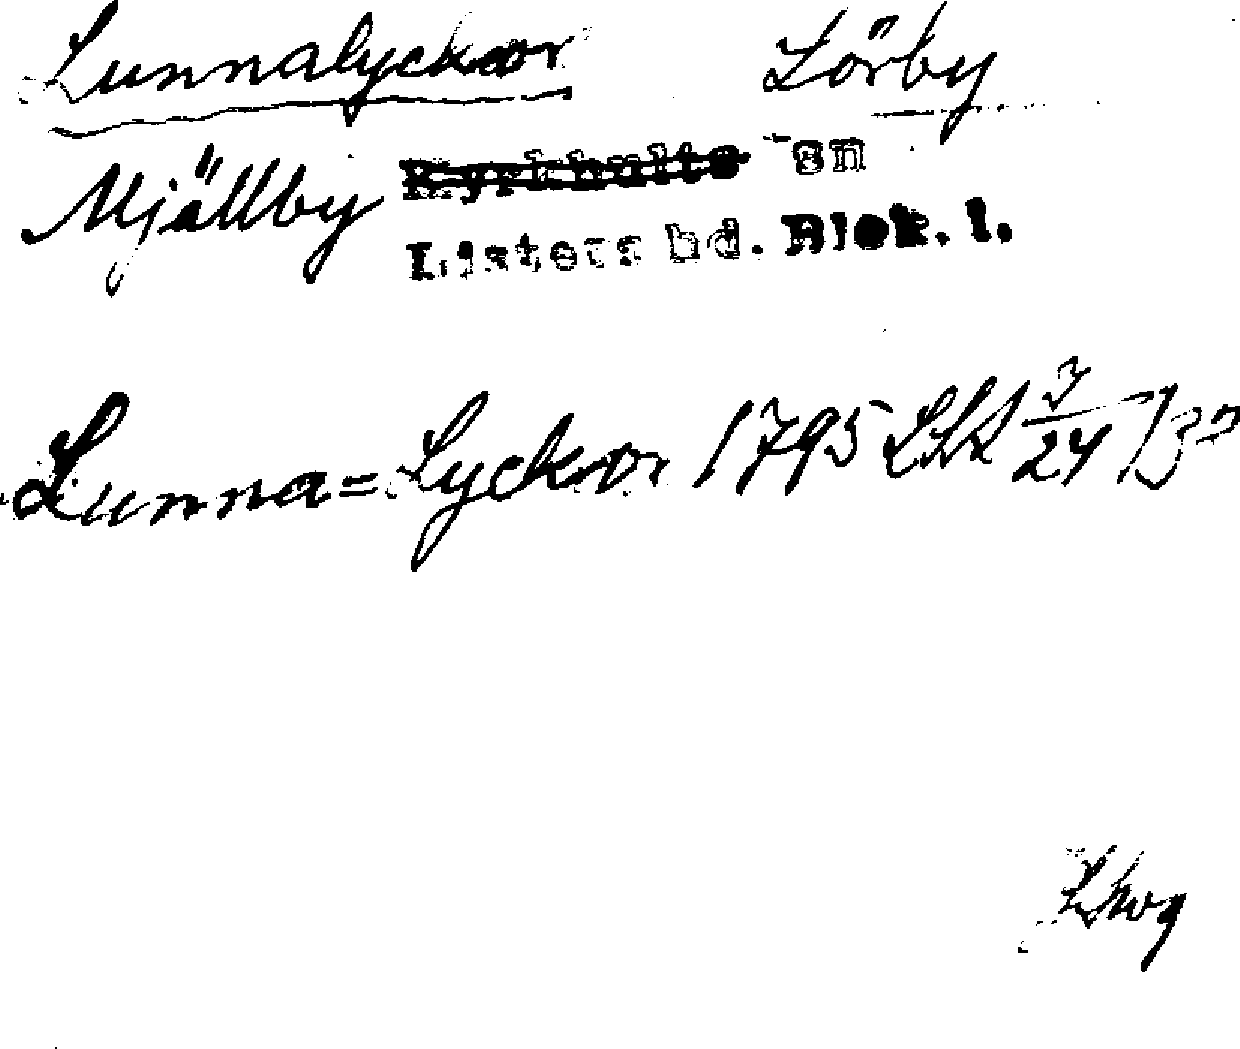 Lunnalyckor Lörby
Mjällby Kyrkhults sn
Listers hd. Blek. l.
Lunna=Lyckor 1795 LSA 3/24 1